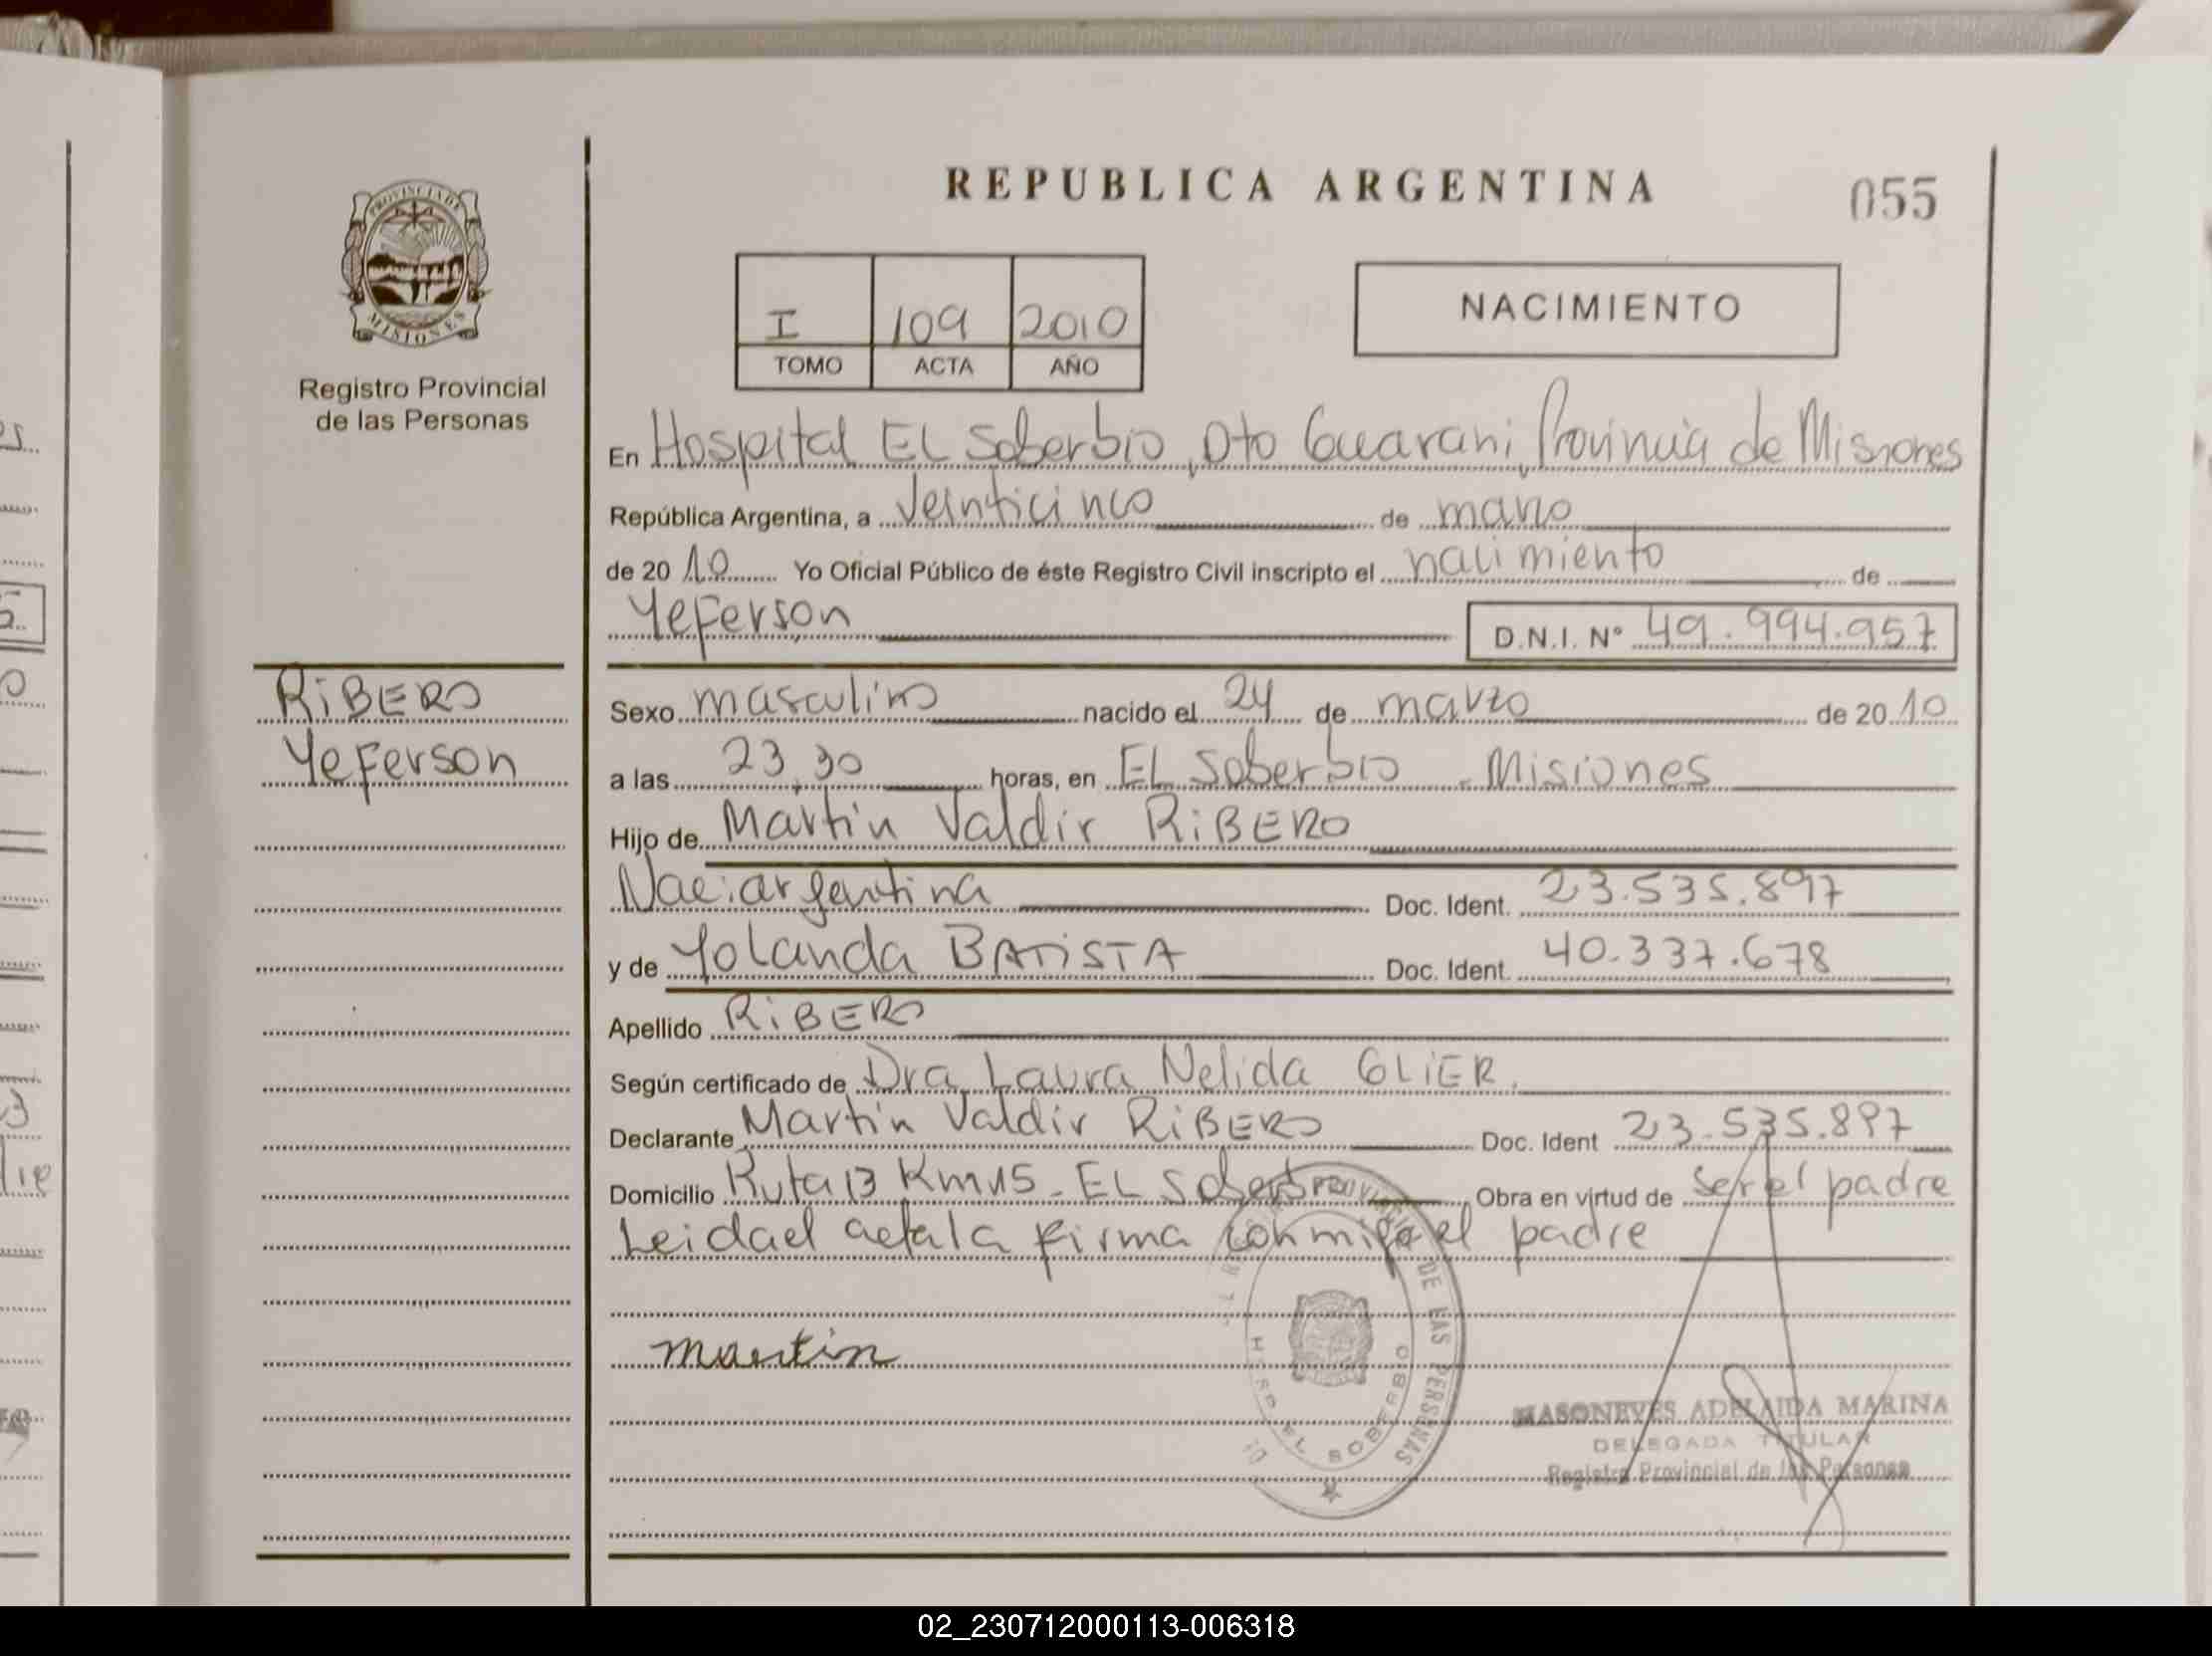 REPUBLICA ARGENTINA
055
PROVINCIA DE
MISIONES
Registro Provincial
de las Personas
I 109 2010
TOMO ACTA AÑO
NACIMIENTO
En Hospital EL Soberbio, Dto Guarani, Provincia de Misiones
República Argentina, a veinticinco de marzo
de 2010 Yo Oficial Público de éste Registro Civil inscripto el nacimiento de
Yeferson D.N.I. Nº 49.994.957
RiBERO
Yeferson
Sexo masculino nacido el 24 de marzo de 2010
a las 23,30 horas, en EL Soberbio - Misiones
Hijo de Martín Valdir RiBERO
Nac: argentina Doc. Ident. 23.535.897
y de Yolanda BATiSTA Doc. Ident. 40.337.678
Apellido RiBERO
Según certificado de Dra Laura Nelida GLiER.
Declarante Martín Valdir RiBERO Doc. Ident 23.535.897
Domicilio Ruta 13 Km 15 - EL Soberbio Obra en virtud de ser el padre
Leida el acta la firma conmigo el padre
martin
PROVINCIAL DE LAS PERSONAS
HOSP EL SOBERBIO
MASONEVES ADELAIDA MARINA
DELEGADA TITULAR
Registro Provincial de las Personas
02_230712000113-006318